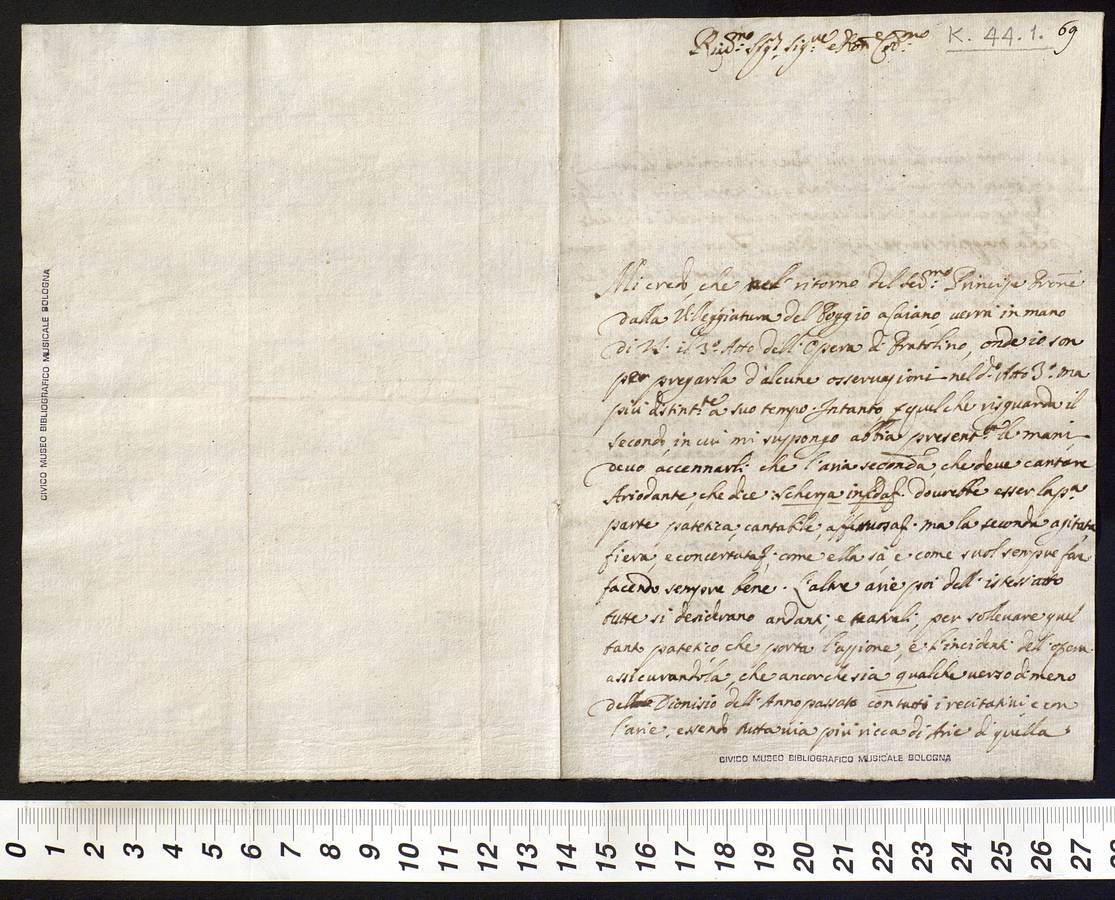 K. 44. 1. 69
Mi credo, che nel ritorno del Ser.mo Principe Prone
dalla Villeggiatura del Poggio a Caiano, verrà in mano
di V.S. il 3.º Atto dell'Opera di Pratolino, onde io son
per pregarla d'alcune osservazioni nel d.º Atto 3.º ma
più distinte a suo tempo. Intanto quel che risguarda il
secondo, in cui mi suppongo abbia presente le mani
devo accennarli che l'aria seconda, che deve cantare
Ariodante, che dice Scherza infida dovrebbe esser la p.a
parte patetica, cantabile, affettuosa, ma la seconda agitata
fiera, e concertata, come ella sà e come suol sempre fare
facendo sempre bene. L'altre arie poi dell'istess'atto
tutte si desiderano andanti, e teatrali, per sollevare quel
tanto patetico che porta l'azzione, e l'incidenti dell'opera
assicurandola, che ancorche sia qualche verso di meno
della Dionisio dell'Anno passato con tutti i recitativi e con
l'arie, essendo tuttavia più ricca di Arie di quella
CIVICO MUSEO BIBLIOGRAFICO MUSICALE BOLOGNA
CIVICO MUSEO BIBLIOGRAFICO MUSICALE BOLOGNA
0 1 2 3 4 5 6 7 8 9 10 11 12 13 14 15 16 17 18 19 20 21 22 23 24 25 26 27